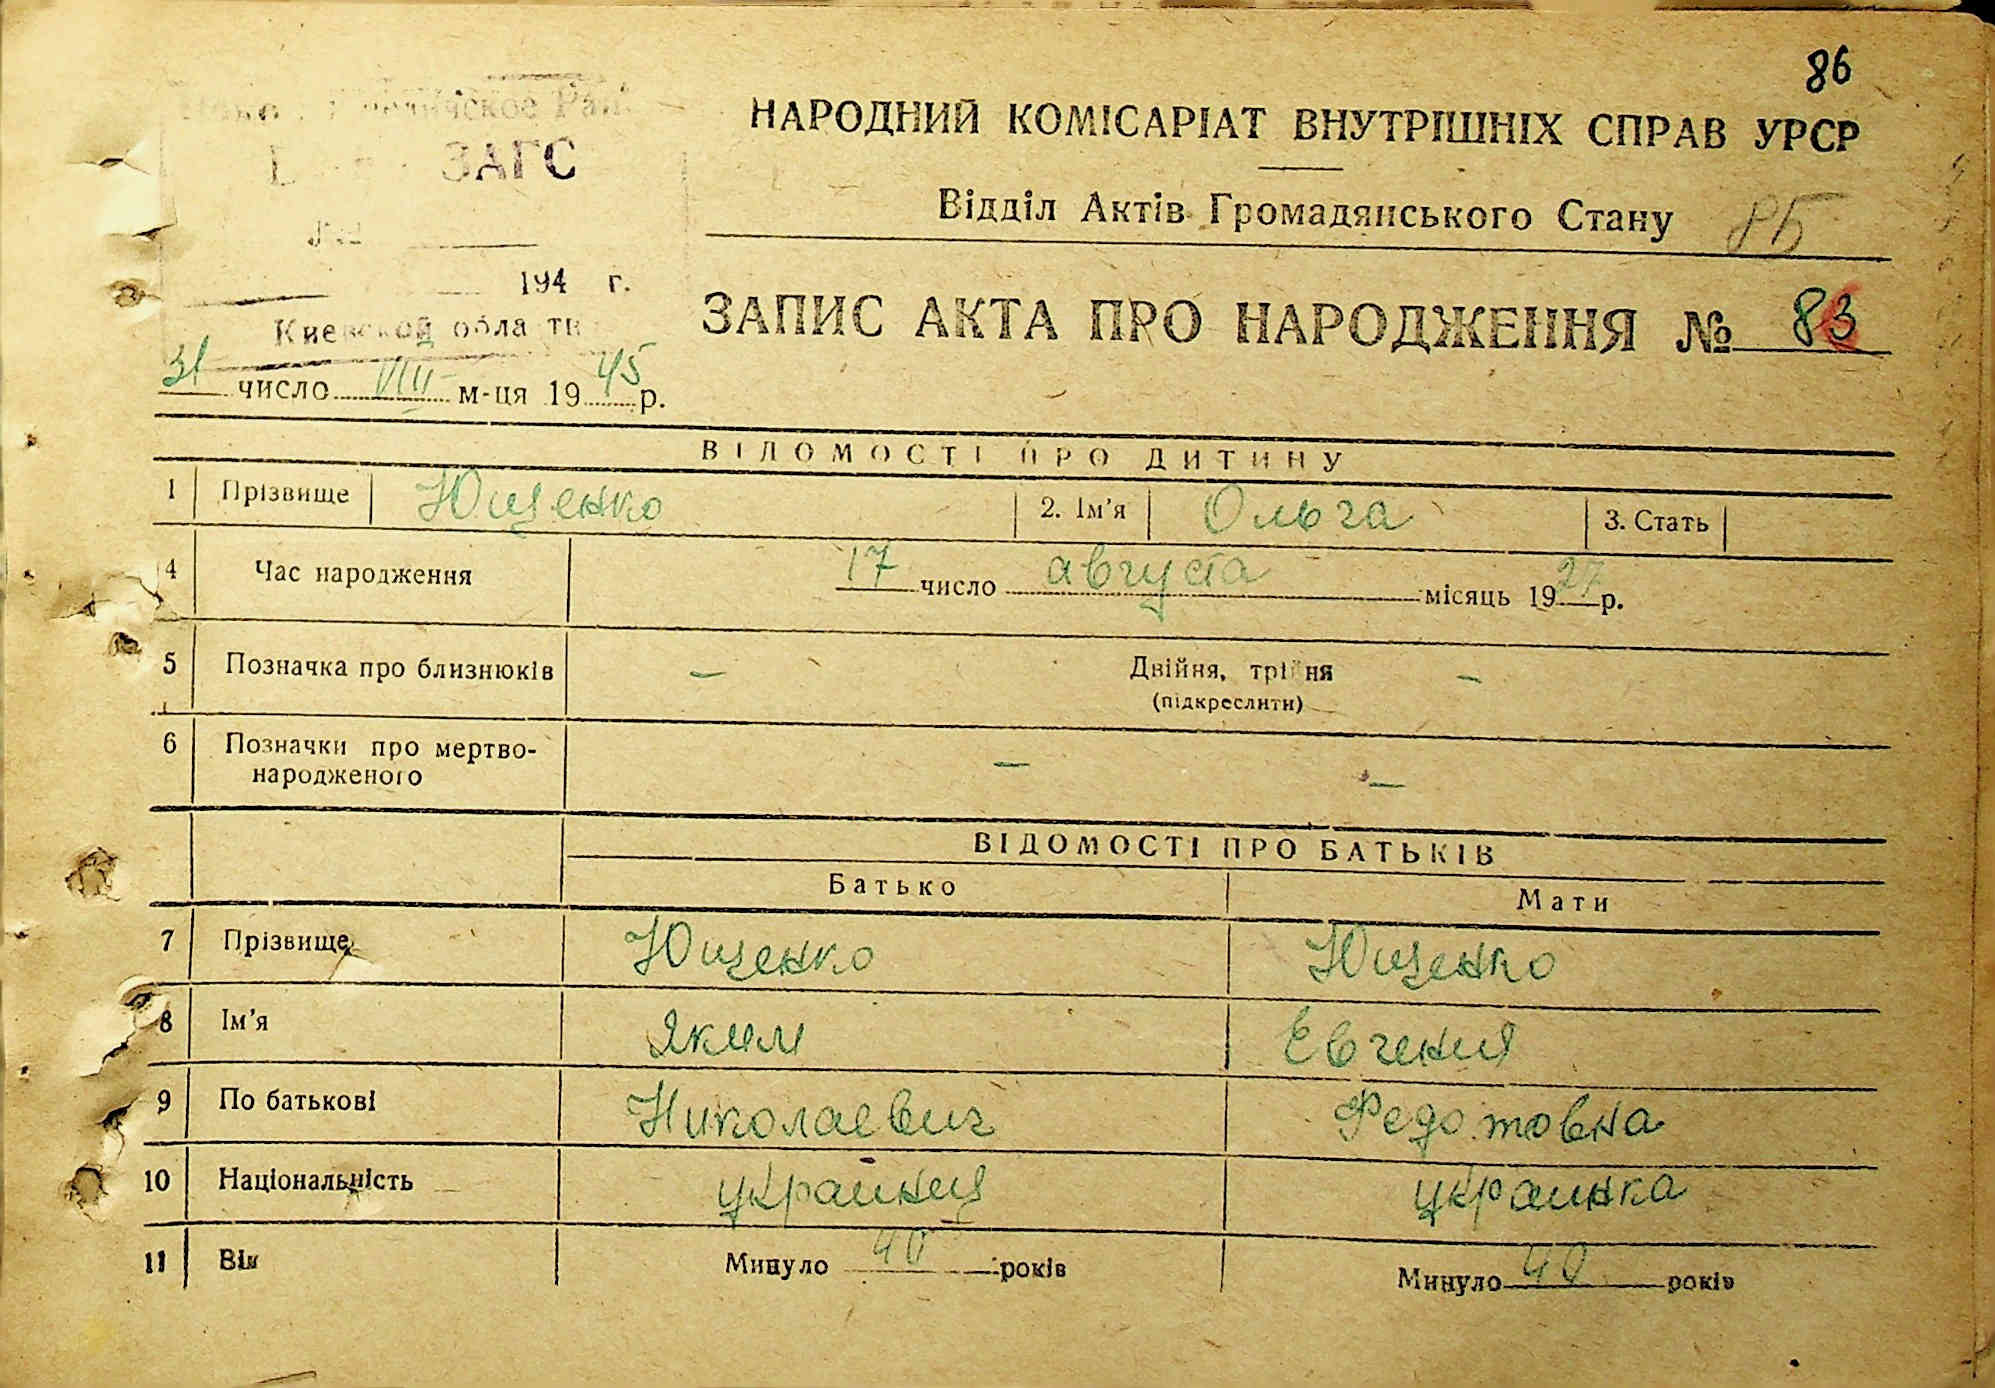 86
ЗАГС
194 г.
Киевской области
НАРОДНИЙ КОМІСАРІАТ ВНУТРІШНІХ СПРАВ УРСР
Відділ Актів Громадянського Стану 85
ЗАПИС АКТА ПРО НАРОДЖЕННЯ № 83
31 число VIII м-ця 1945 р.
ВІДОМОСТІ ПРО ДИТИНУ
1 Прізвище Ющенко 2. Ім'я Ольга 3. Стать
4 Час народження 17 число августа місяць 1927 р.
5 Позначка про близнюків – Двійня, трійня –
(підкреслити)
6 Позначки про мертво-
народженого – –
ВІДОМОСТІ ПРО БАТЬКІВ
Батько Мати
7 Прізвище Ющенко Ющенко
8 Ім'я Яким Евгения
9 По батькові Николаевич Федотовна
10 Національність украинец украинка
11 Вік Минуло 40 років Минуло 40 років